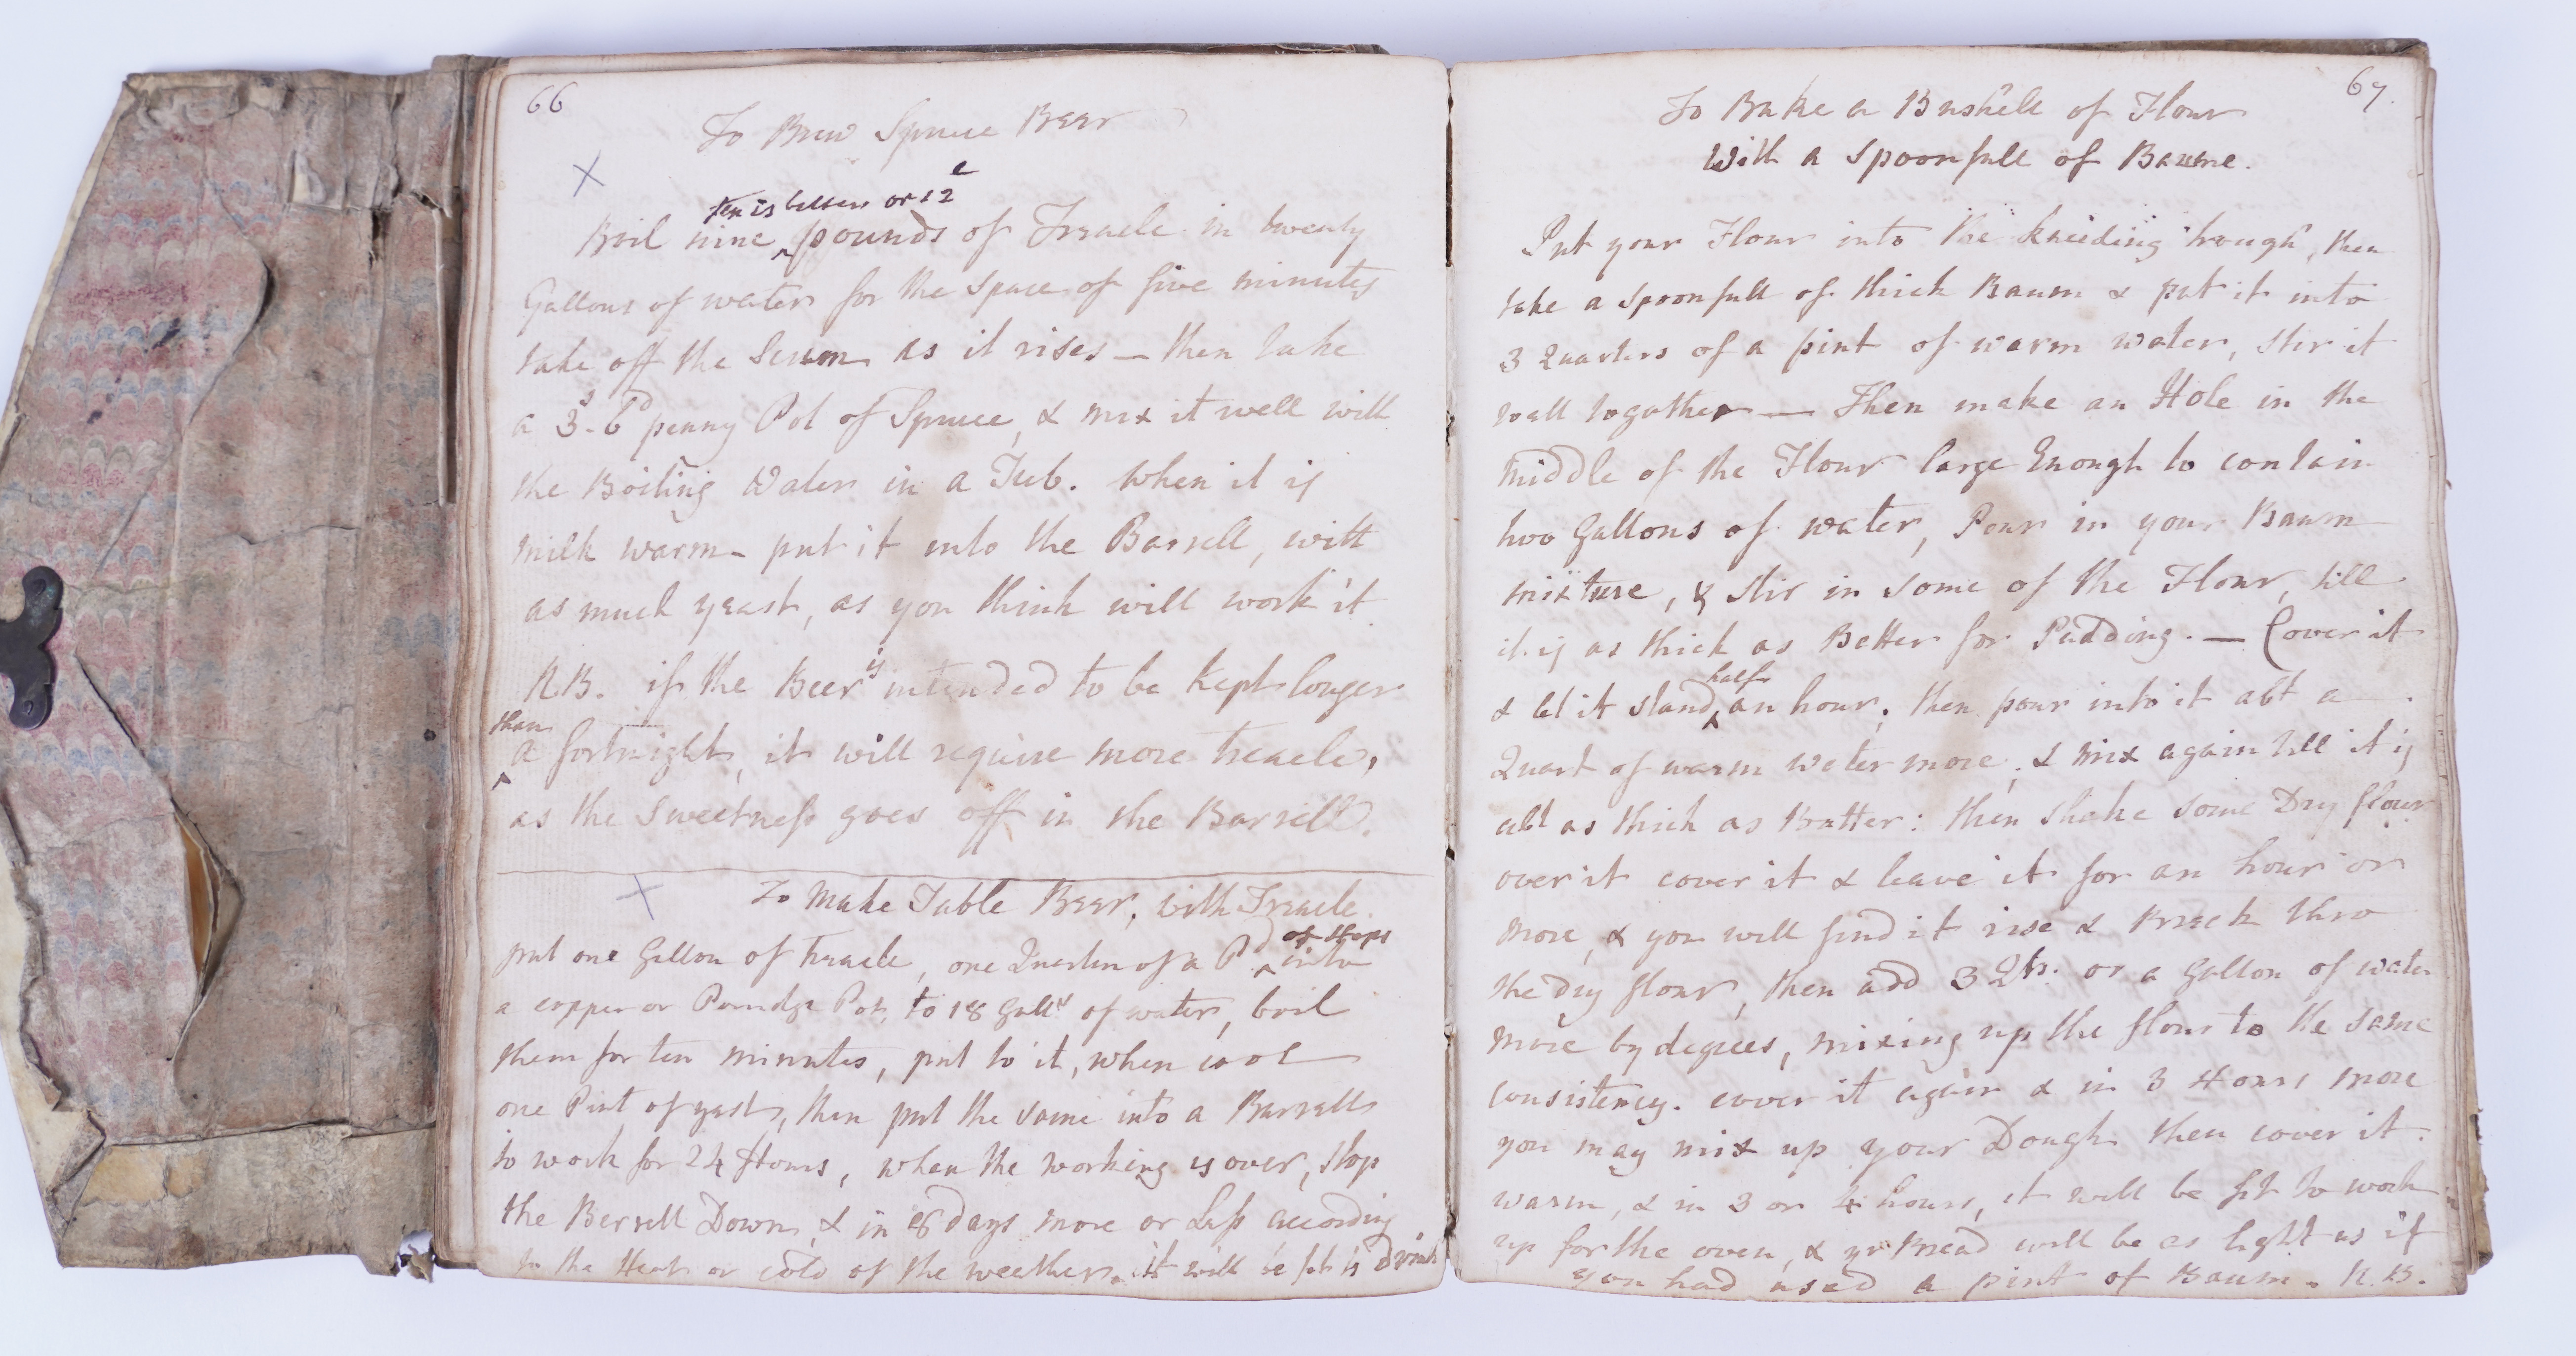 66
To Brew Spruce Beer
ten is better or 12
Boil nine pounds of Treacle in twenty
Gallons of water for the space of five minutes
take off the Scum as it rises — then take
a 3s. 6d penny Pot of Spruce, & mix it well with
the Boiling Water in a Tub. When it is
milk warm put it into the Barrell, with
as much yeast, as you think will work it
N.B. if the Beer is intended to be kept longer
than
a fortnight, it will require more treacle,
as the sweetness goes off in the Barrell.
To Make Table Beer, with Treacle.
of Hops
put one Gallon of treacle, one Quarter of a Pd. into
a copper or Porridge Pot, to 18 Galls of water, boil
them for ten minutes, put to it, when cool
one Pint of yeast, then put the same into a Barrell
to work for 24 Hours, when the working is over, stop
the Barrell Down, & in 8 days more or Less according
to the Heat or cold of the weather. it will be fit to drink
67.
To Bake a Bushell of Flour
With a Spoonfull of Baume.
Put your Flour into the kneeding trough, then
take a spoonfull of thick Baum & put it into
3 Quarters of a pint of warm water, stir it
well together — Then make an Hole in the
middle of the Flour large Enough to contain
two Gallons of water, Pour in your Baum
mixture, & stir in some of the Flour, till
it is as thick as Batter for Pudding. — Cover it
half
& let it stand an hour. then pour into it abt a
Quart of warm water more, & mix again till it is
abt as thick as Batter: then shake some Dry flour
over it cover it & leave it for an hour or
more, & you will find it rise & Break thro
the dry flour, then add 3 Qts. or a Gallon of water
more by degrees, mixing up the flour to the same
consistency. cover it again & in 3 Hours more
you may mix up your Dough then cover it
warm, & in 3 or 4 hours, it will be fit to work
up for the oven, & yr Bread will be as light as if
you had used a pint of Baum. N.B.